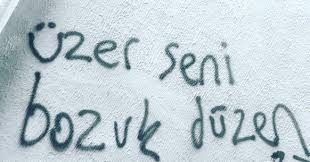 üzer seni
bozuk düzen